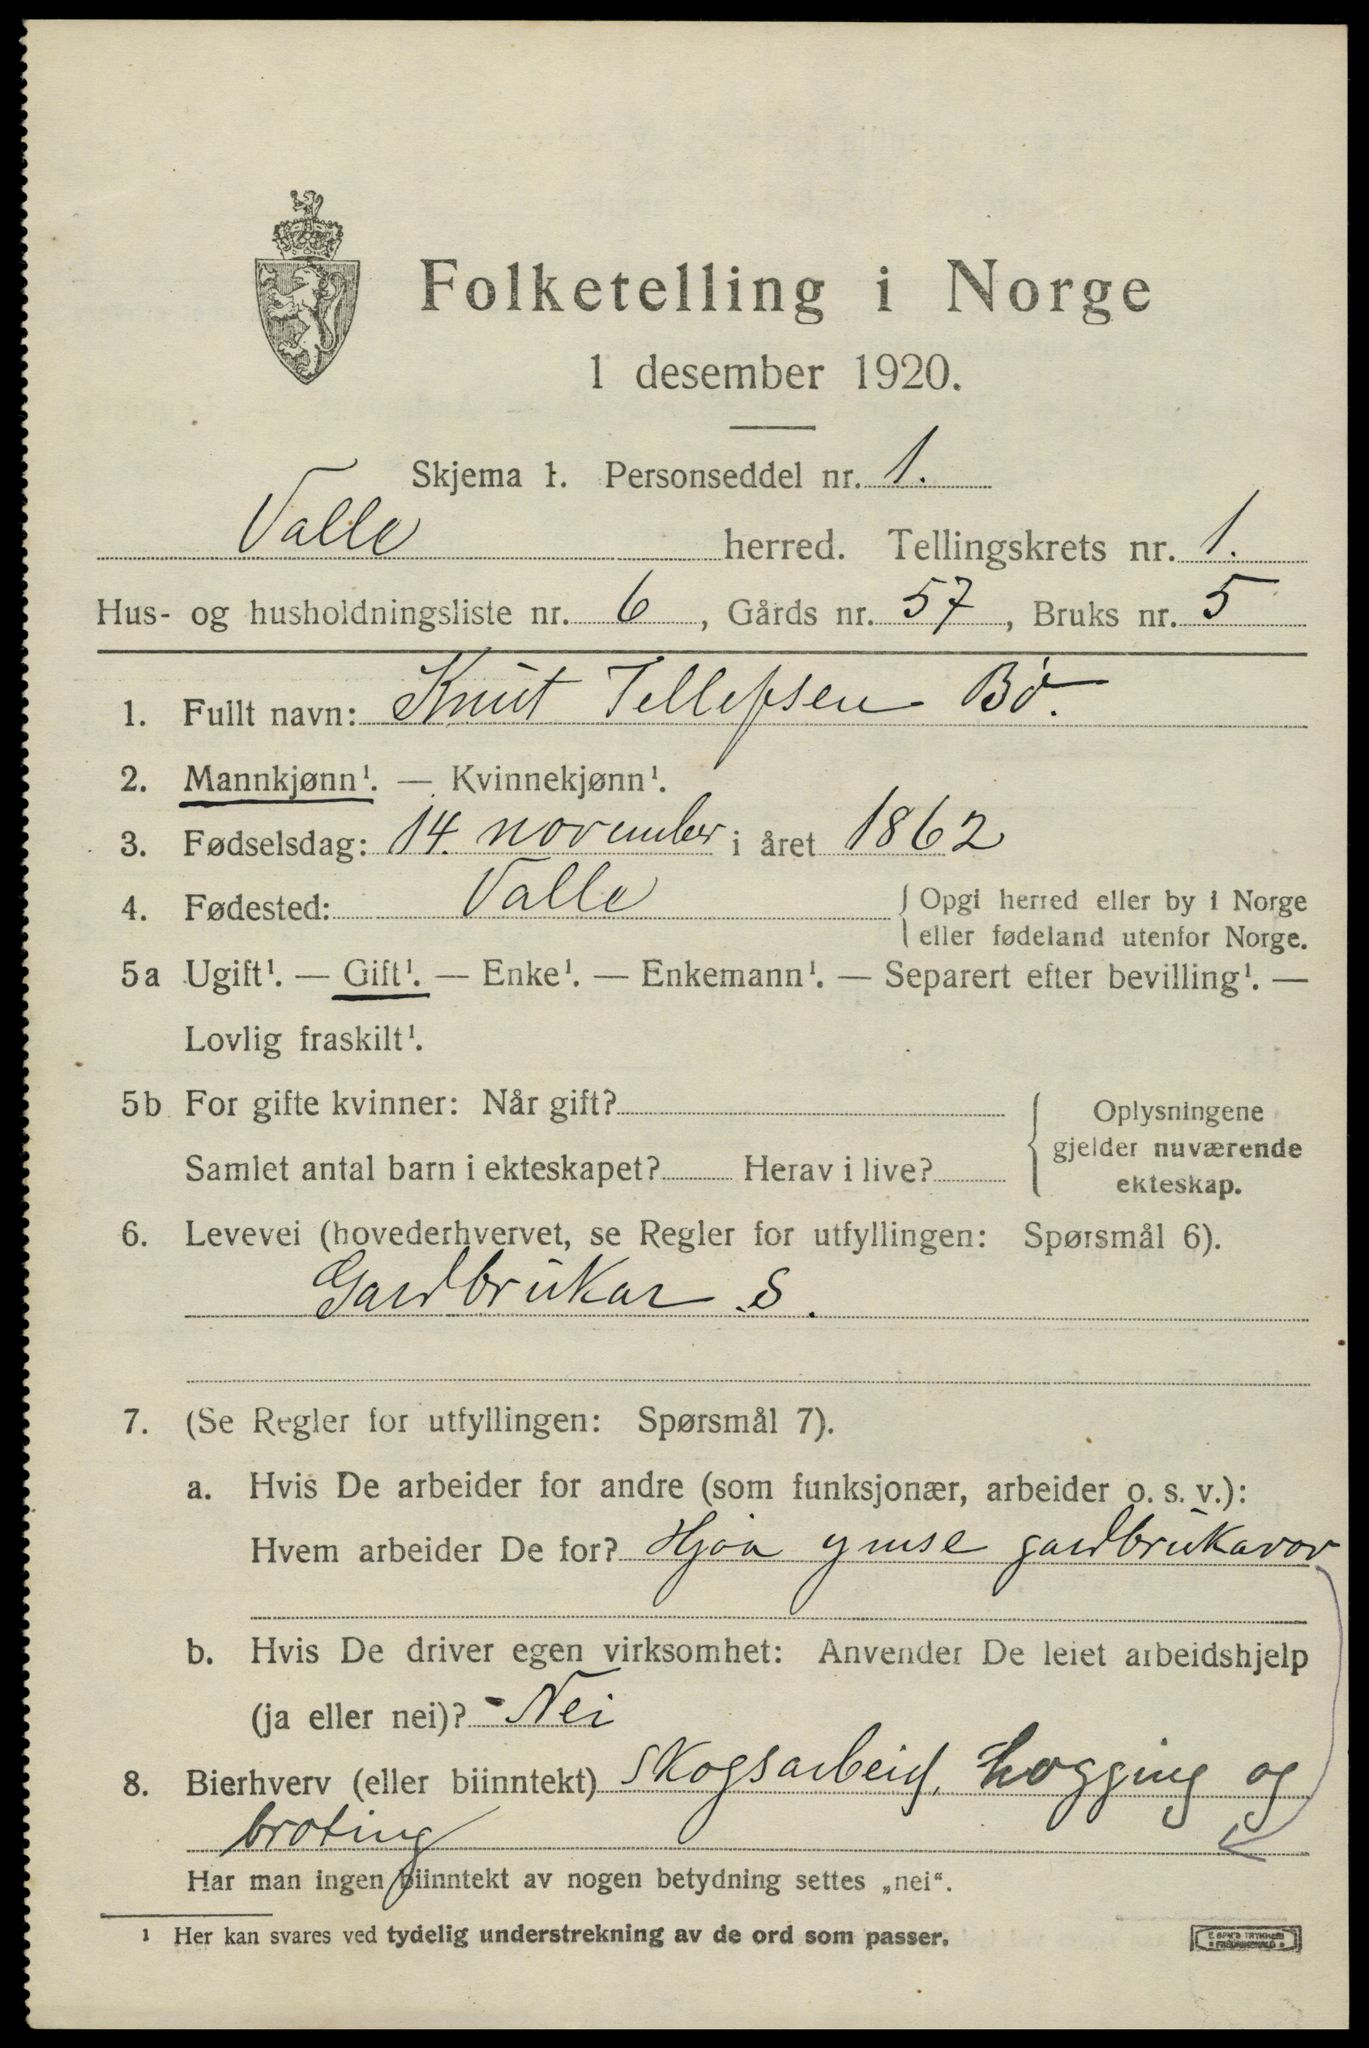 Folketelling i Norge
1 desember 1920.
Skjema 1. Personseddel nr. 1.
Valle herred. Tellingskrets nr. 1.
Hus- og husholdningsliste nr. 6, Gårds nr. 57, Bruks nr. 5
1. Fullt navn: Knut Tellefsen Bø.
2. Mannkjønn¹. — Kvinnekjønn¹.
3. Fødselsdag: 14. november i året 1862
4. Fødested: Valle { Opgi herred eller by i Norge
eller fødeland utenfor Norge.
5a Ugift¹. — Gift¹. — Enke¹. — Enkemann¹. — Separert efter bevilling¹. —
Lovlig fraskilt¹.
5b For gifte kvinner: Når gift? { Oplysningene
gjelder nuværende
Samlet antal barn i ekteskapet? Herav i live?
ekteskap.
6. Levevei (hovederhvervet, se Regler for utfyllingen: Spørsmål 6).
Gardbrukar S.
7. (Se Regler for utfyllingen: Spørsmål 7).
a. Hvis De arbeider for andre (som funksjonær, arbeider o. s. v.):
Hvem arbeider De for? Hjaa ymse gardbrukarar
b. Hvis De driver egen virksomhet: Anvender De leiet arbeidshjelp
(ja eller nei)? Nei
8. Bierhverv (eller biinntekt) Skogsarbeid, hogging og
broting
Har man ingen biinntekt av nogen betydning settes „nei“.
¹ Her kan svares ved tydelig understrekning av de ord som passer.